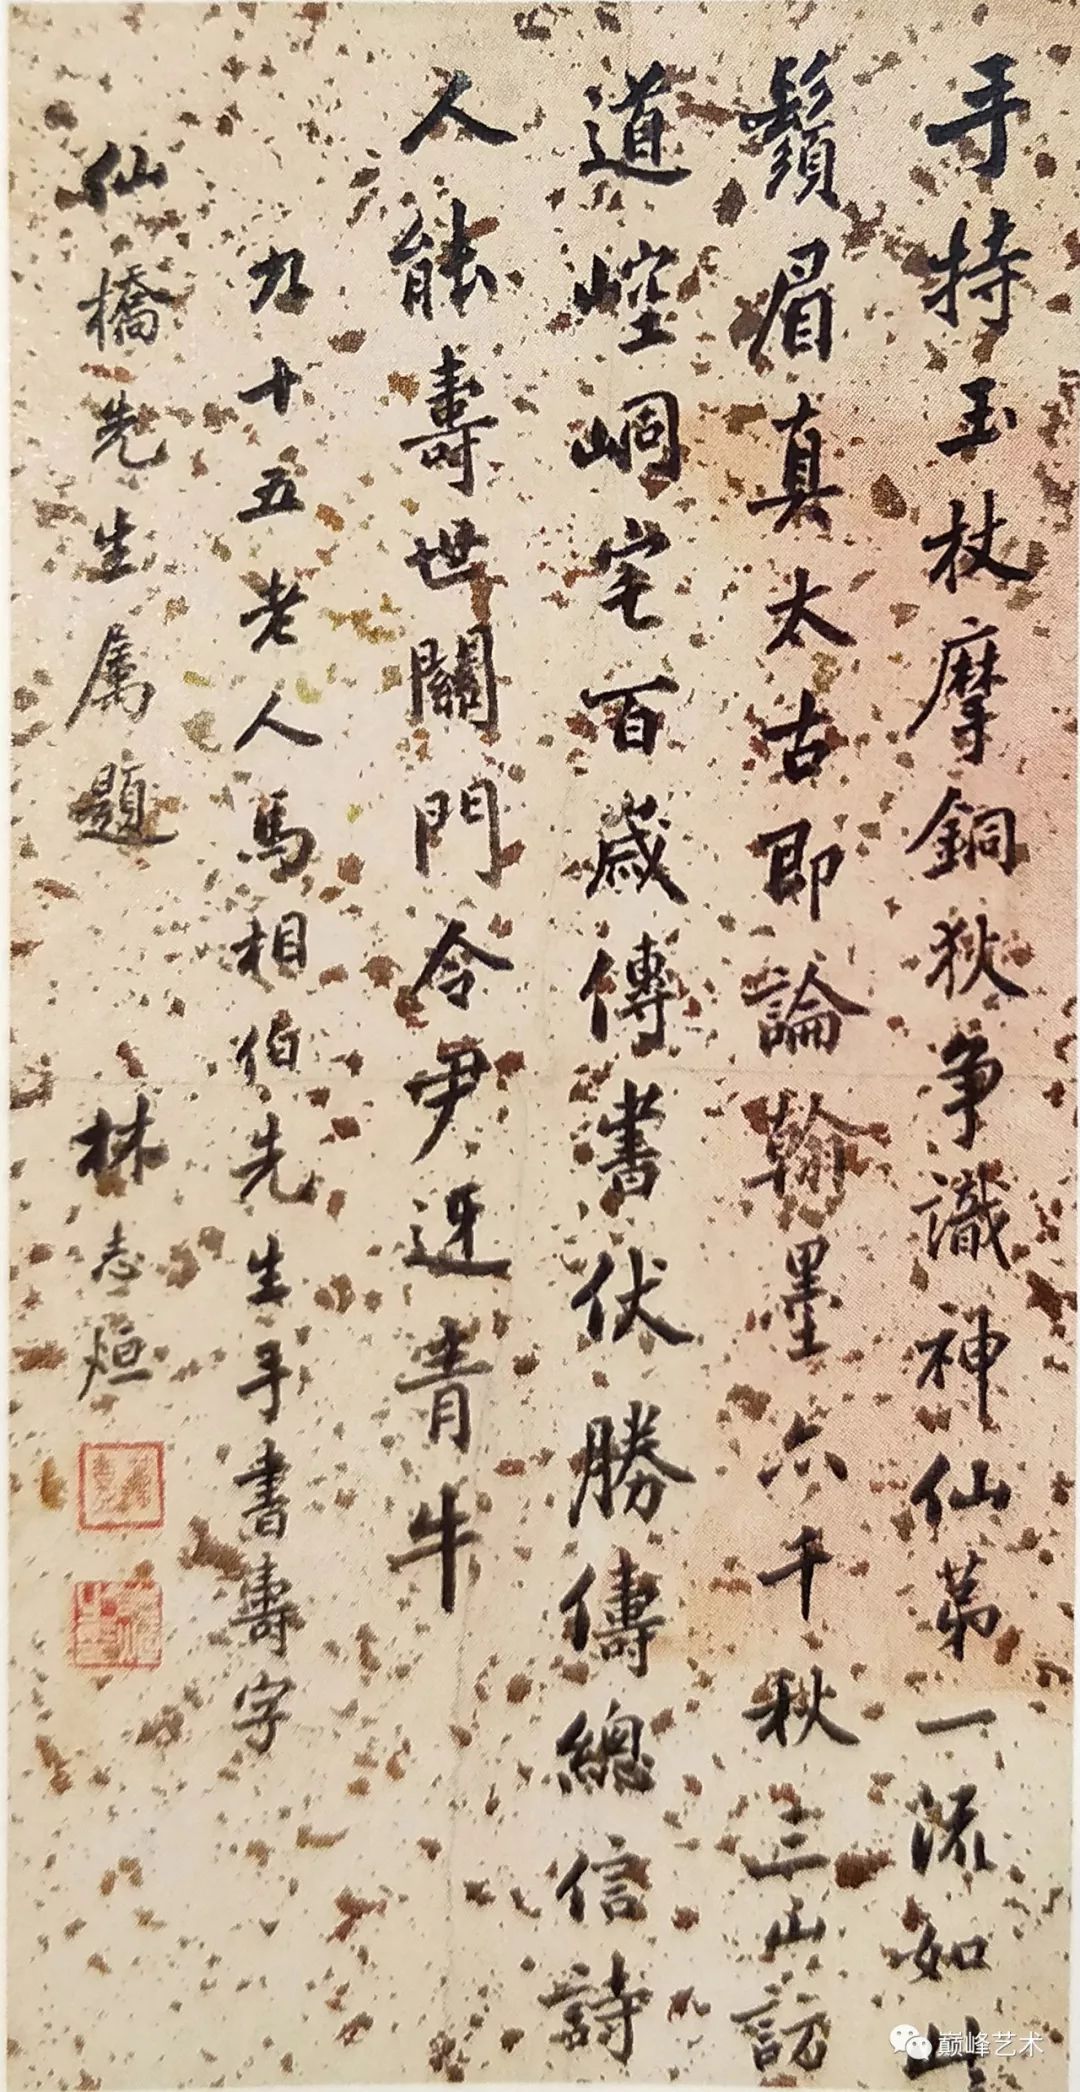 手持玉杖摩銅狄争識神仙第一流如此
鬚眉真太古即論翰墨亦千秋三山訪
道崆峒宅百歲傳書伏勝儔總信詩
人能壽世關門令尹迓青牛
九十五老人馬相伯先生手書壽字
仙橋先生属題 林志烜
巅峰艺术